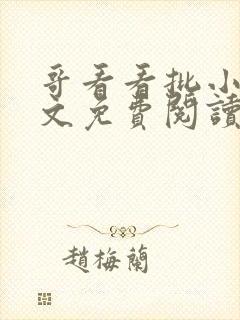 哥看看批小
文免費閱讀
趙梅蘭